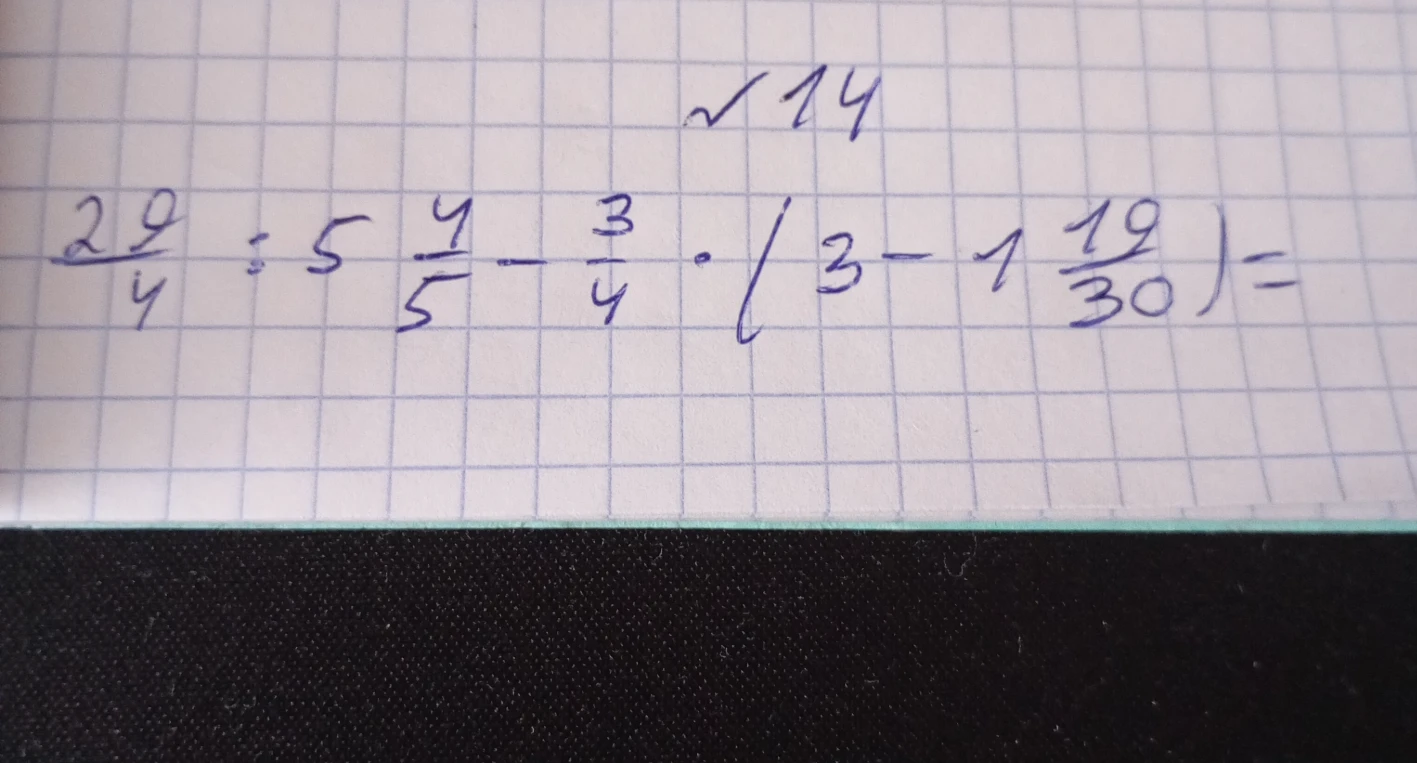 √14
29/4 : 5 4/5 - 3/4 · (3 - 1 19/30) =